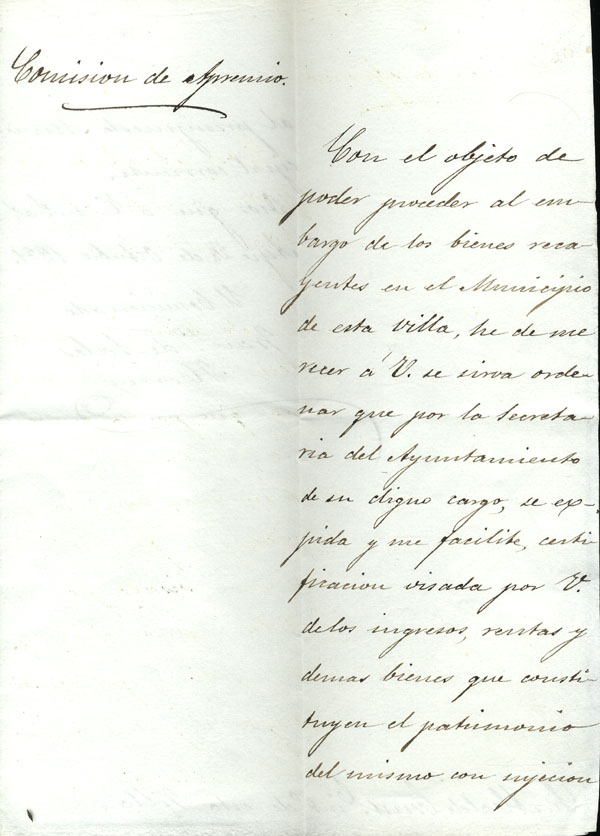 Comision de Apremio.
Con el objeto de
poder proceder al em-
bargo de los bienes reca-
yentes en el Municipio
de esta villa, he de me
recer á V. se sirva orde-
nar que por la Secreta-
ria del Ayuntamiento
de su digno cargo, se ex-
pida y me facilite, certi-
ficacion visada por V.
de los ingresos, rentas y
demas bienes que consti-
tuyen el patrimonio
del mismo con sujecion